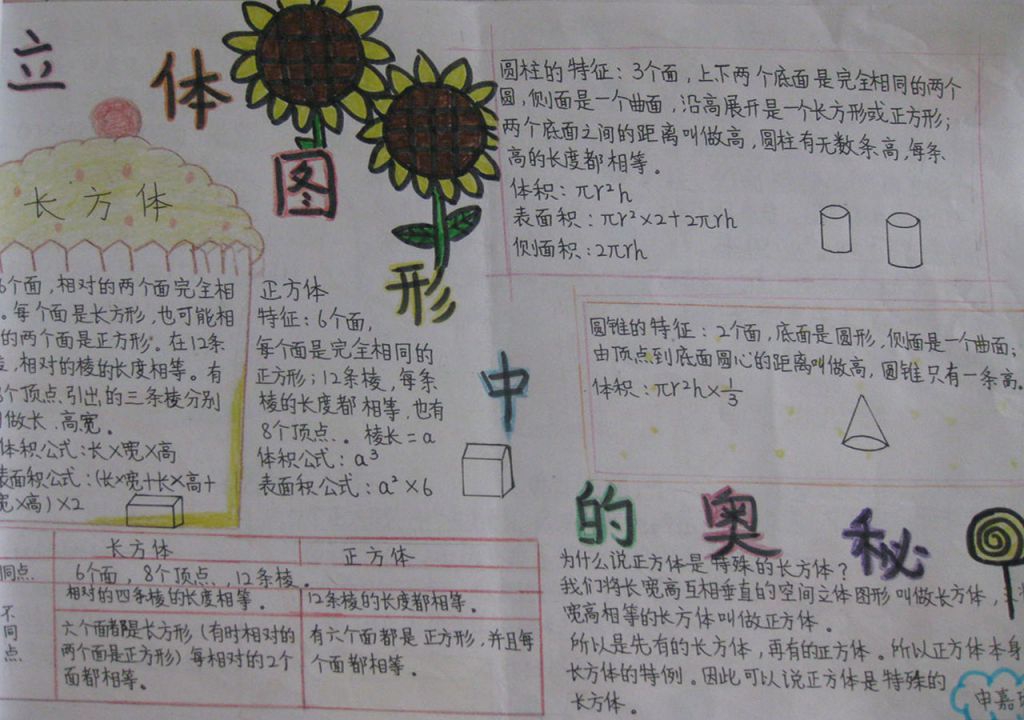 立体图形中的奥秘
长方体
6个面，相对的两个面完全相
。每个面是长方形，也可能相
的两个面是正方形。在12条
棱，相对的棱的长度相等。有
8个顶点.引出的三条棱分别
叫做长.高宽。
体积公式:长×宽×高
表面积公式:(长×宽+长×高+
宽×高)×2
正方体
特征：6个面，
每个面是完全相同的
正方形；12条棱，每条
棱的长度都相等，也有
8个顶点.。棱长=a
体积公式：a³
表面积公式：a²×6
圆柱的特征：3个面，上下两个底面是完全相同的两个
圆，侧面是一个曲面，沿高展开是一个长方形或正方形；
两个底面之间的距离叫做高，圆柱有无数条高，每条
高的长度都相等。
体积：πr²h
表面积：πr²×2+2πrh
侧面积：2πrh
圆锥的特征：2个面，底面是圆形，侧面是一个曲面；
由顶点到底面圆心的距离叫做高，圆锥只有一条高。
体积：πr²h×1/3
长方体 正方体
同点 6个面，8个顶点.，12条棱。
不同点 相对的四条棱的长度相等。 12条棱的长度都相等。
六个面都是长方形（有时相对的
两个面是正方形）每相对的2个
面都相等。
有六个面都是正方形，并且每
个面都相等。
为什么说正方体是特殊的长方体？
我们将长宽高互相垂直的空间立体图形叫做长方体，
宽高相等的长方体叫做正方体。
所以是先有的长方体，再有的正方体。所以正方体本身
长方体的特例。因此可以说正方体是特殊的
长方体。
申嘉